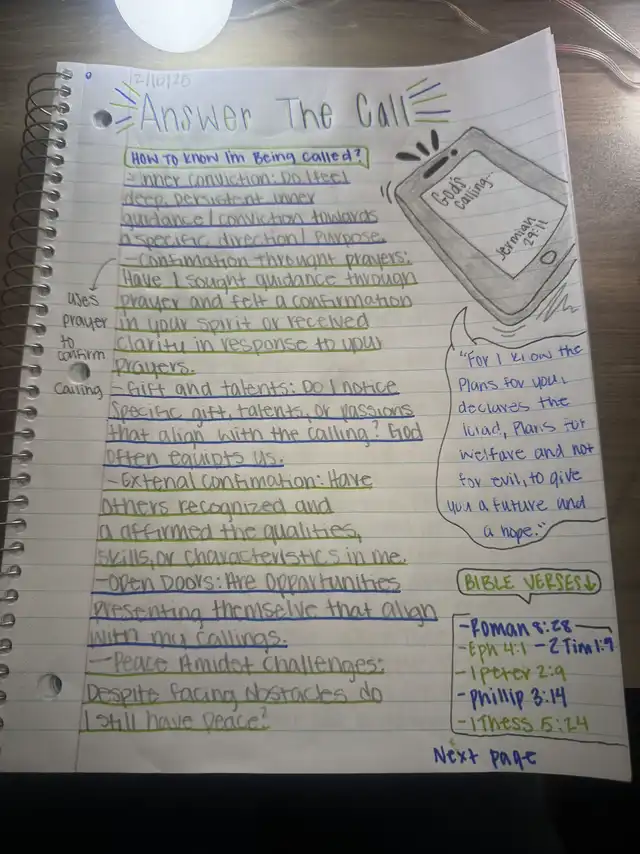 2/10/25
Answer The Call
How to know I'm Being Called?
- Inner conviction: Do I feel
deep, persistent inner
guidance/conviction towards
a specific direction/purpose.
- Confimation throught prayers:
Have I sought guidance through
prayer and felt a confirmation
in your spirit or received
clarity in response to your
prayers.
- Gift and talents: Do I notice
specific gift, talents, or passions
that align with the calling? God
often equipts us.
- External confirmation: Have
others recognized and
a affirmed the qualities,
skills, or characteristics in me.
- Open Doors: Are opportunities
presenting themselve that align
with my callings.
- Peace Amidst Challenges:
Despite facing obstacles do
I still have peace?
uses
prayer
to
confirm
calling
God's
calling...
Jermian
29:11
"For I know the
Plans for you,
declares the
lord, Plans for
welfare and not
for evil, to give
you a future and
a hope."
BIBLE VERSES↓
- Roman 8:28
- Eph 4:1 - 2 Tim 1:9
- 1 Peter 2:9
- Phillip 3:14
- 1 Thess 5:24
Next page